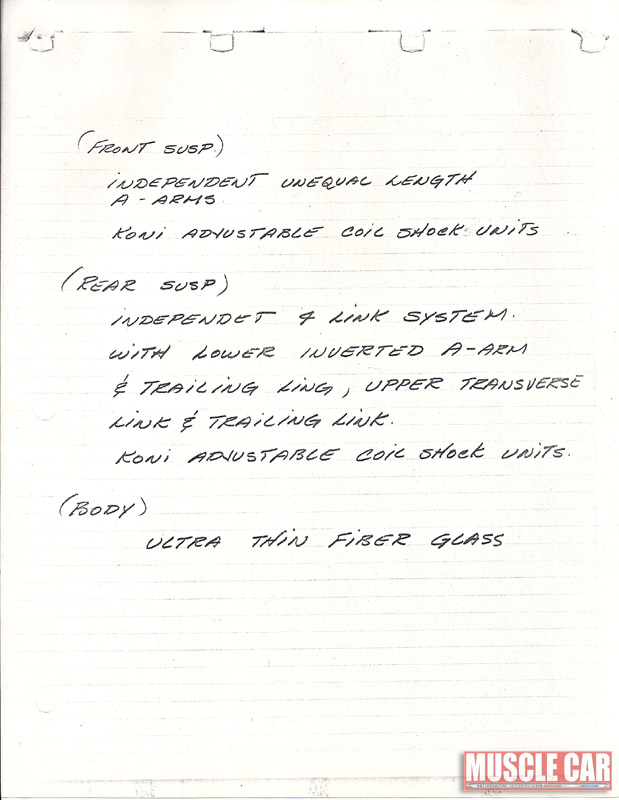 (FRONT SUSP.)
INDEPENDENT UNEQUAL LENGTH
A-ARMS.
KONI ADJUSTABLE COIL SHOCK UNITS
(REAR SUSP)
INDEPENDET 4 LINK SYSTEM.
WITH LOWER INVERTED A-ARM
& TRAILING LING, UPPER TRANSVERSE
LINK & TRAILING LINK.
KONI ADJUSTABLE COIL SHOCK UNITS.
(BODY)
ULTRA THIN FIBER GLASS
MUSCLE CAR